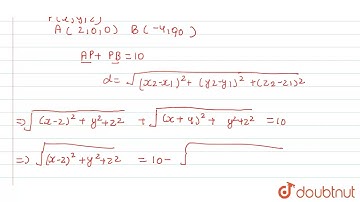 P(x,y,z)
A ( 2,0,0) B(-4,0,0)
AP+ PB = 10
d = √(x2-x1)²+ (y2-y1)² + (z2-z1)²
⇒ √(x-2)² + y²+z² + √(x+4)² + y²+z² = 10
⇒ √(x-2)²+y²+z² = 10 - √
doubtnut